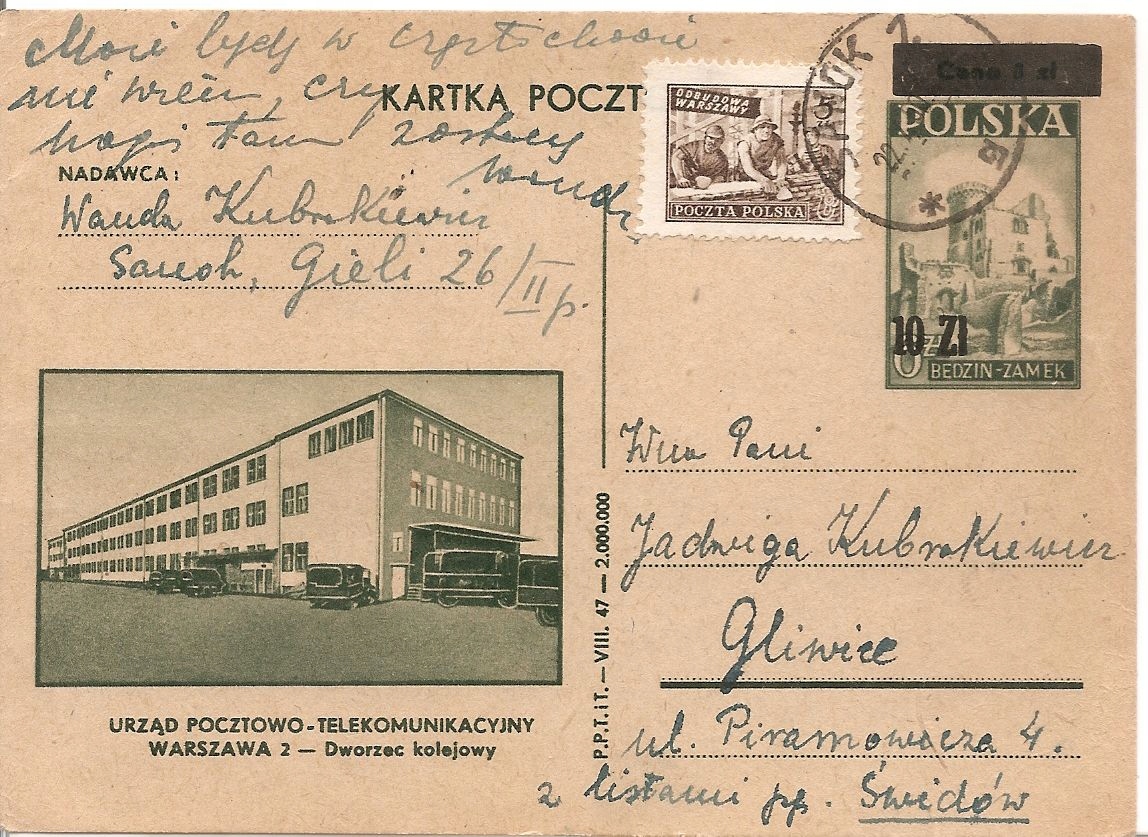 Może będę w Częstochowie
nie wiem, czy
kogoś tam zastanę
Wanda
KARTKA POCZT
NADAWCA:
Wanda Kubrakiewicz
Sanok, Gieli 26/II p.
ODBUDOWA
WARSZAWY
POCZTA POLSKA
SANOK 2
Cena 8 zł
POLSKA
10 Zl
BĘDZIN-ZAMEK
URZĄD POCZTOWO-TELEKOMUNIKACYJNY
WARSZAWA 2 — Dworzec kolejowy
P.P.T.iT. — VIII. 47 — 2.000.000
Wna Pani
Jadwiga Kubrakiewicz
Gliwice
ul. Piramowicza 4.
z listami pp. Świdów